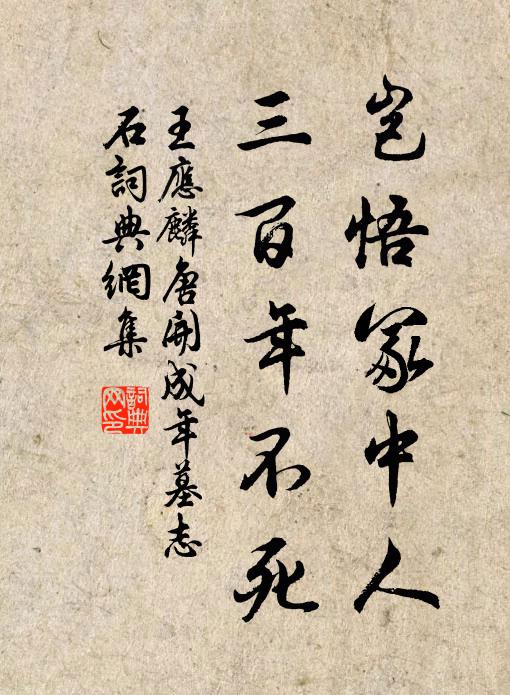 岂悟冢中人
三百年不死
王應麟唐開成年墓志
石詞典網集
詞典网印